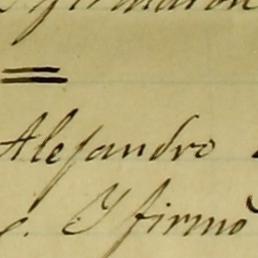 firmaron
=
Alejandro
Y firmó